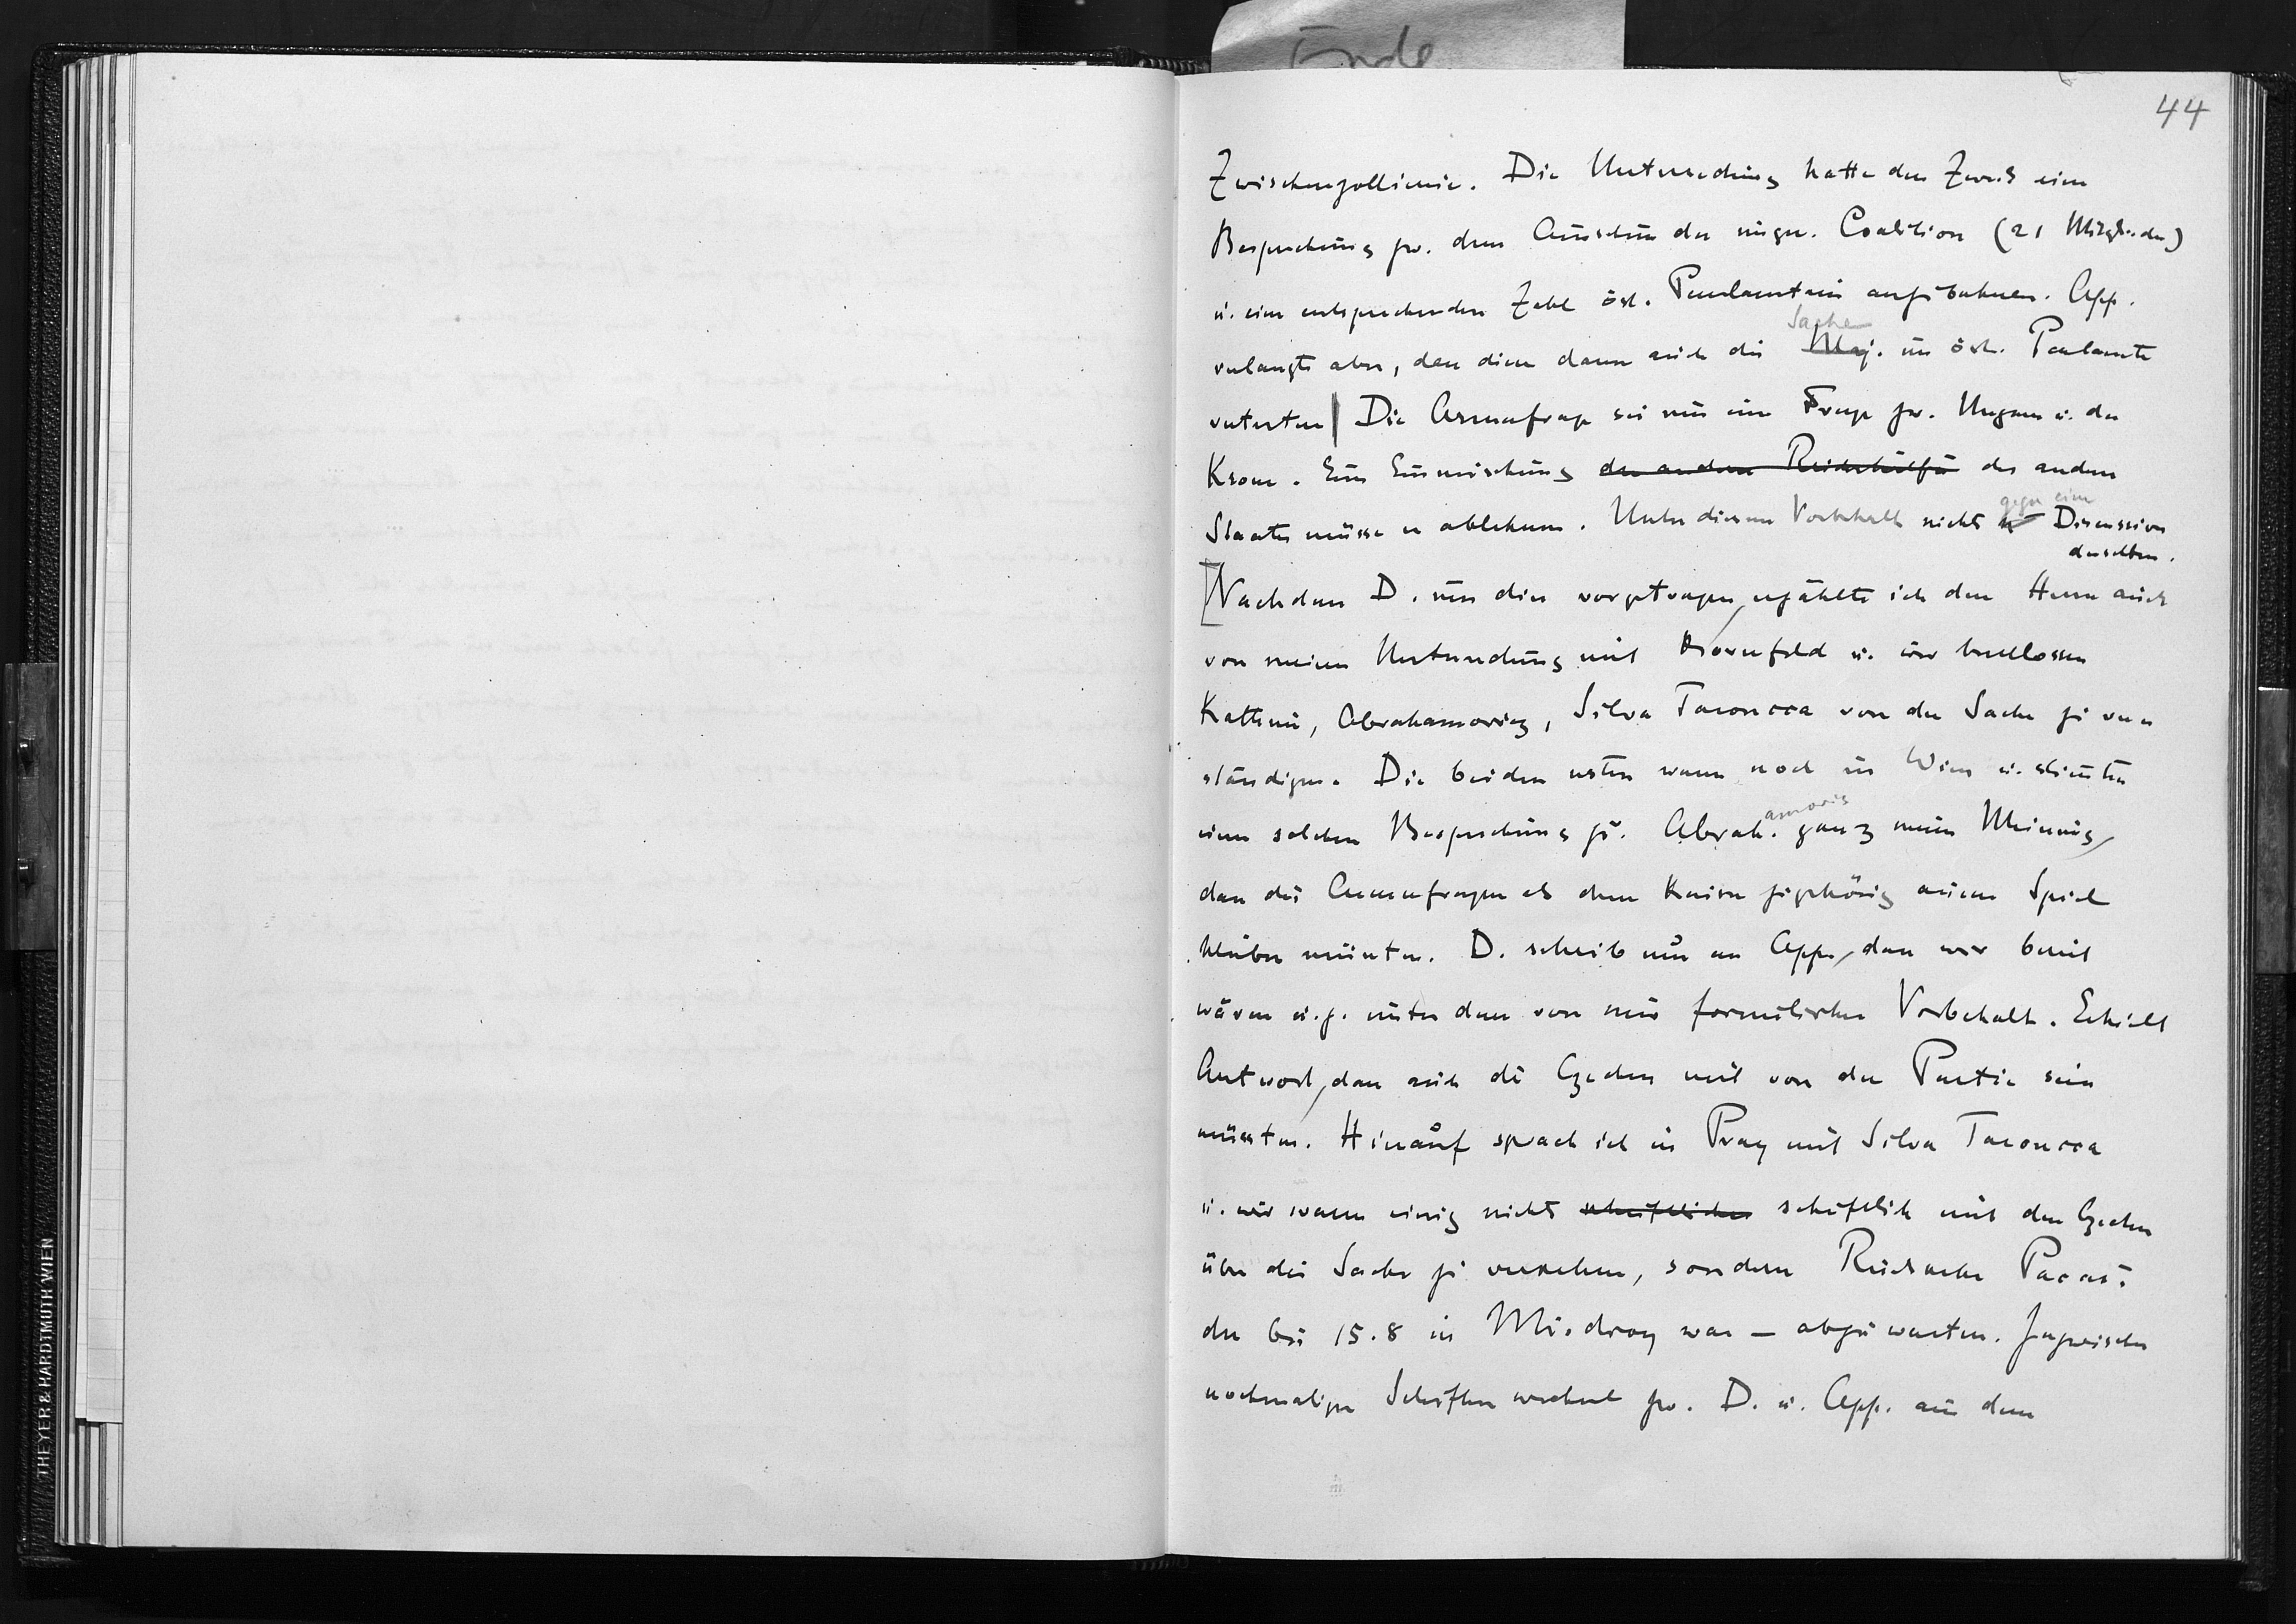 Ende
44
Zwischenzollinie. Die Unterredung hatte den Zweck eine
Besprechung zw. dem Ausschuss der ungar. Coalition (21 Mitglieder)
u. einer entsprechenden Zahl öst. Parlamentarier anzubahnen. App.
verlangte aber, dass diese dann auch die Maj. im öst. Parlamente
Sache
vertreten | Die Armeefrage sei nur eine Frage zw. Ungarn u. der
Krone. Eine Einmischung der andern Reichshälfte des andern
Staates müsse er ablehnen. Unter diesem Vorbehalt nichts gegen eine Discussion
derselben.
[Nachdem D. uns dies vorgetragen, erzählte ich den Herren auch
von meiner Unterredung mit Kornfeld u. wir beschlossen
Kathrein, Abrahamovicz, Silva Tarouca von der Sache zu ver
ständigen. Die beiden ersten waren noch in Wien u. stimmten
einer solchen Besprechung zu. Abrah. ganz meiner Meinung,
amovic
dass die Armeefragen als dem Kaiser zugehörig ausser Spiel
bleiben müssten. D. schrieb nun an App., dass wir bereit
wären u. z. unter dem von mir formulierten Vorbehalt. Erhielt
Antwort, dass auch die Czechen mit von der Partie sein
müssten. Hierauf sprach ich in Prag mit Silva Tarouca
u. wir waren einig nichts schriftliches schriftlich mit den Czechen
über die Sache zu verkehren, sondern Rückkehr Pacak's
der bis 15.8 in Misdroy war – abzuwarten. Inzwischen
nochmaliger Schriftenwechsel zw. D. u. App. aus dem
THEYER & HARDTMUTH WIEN